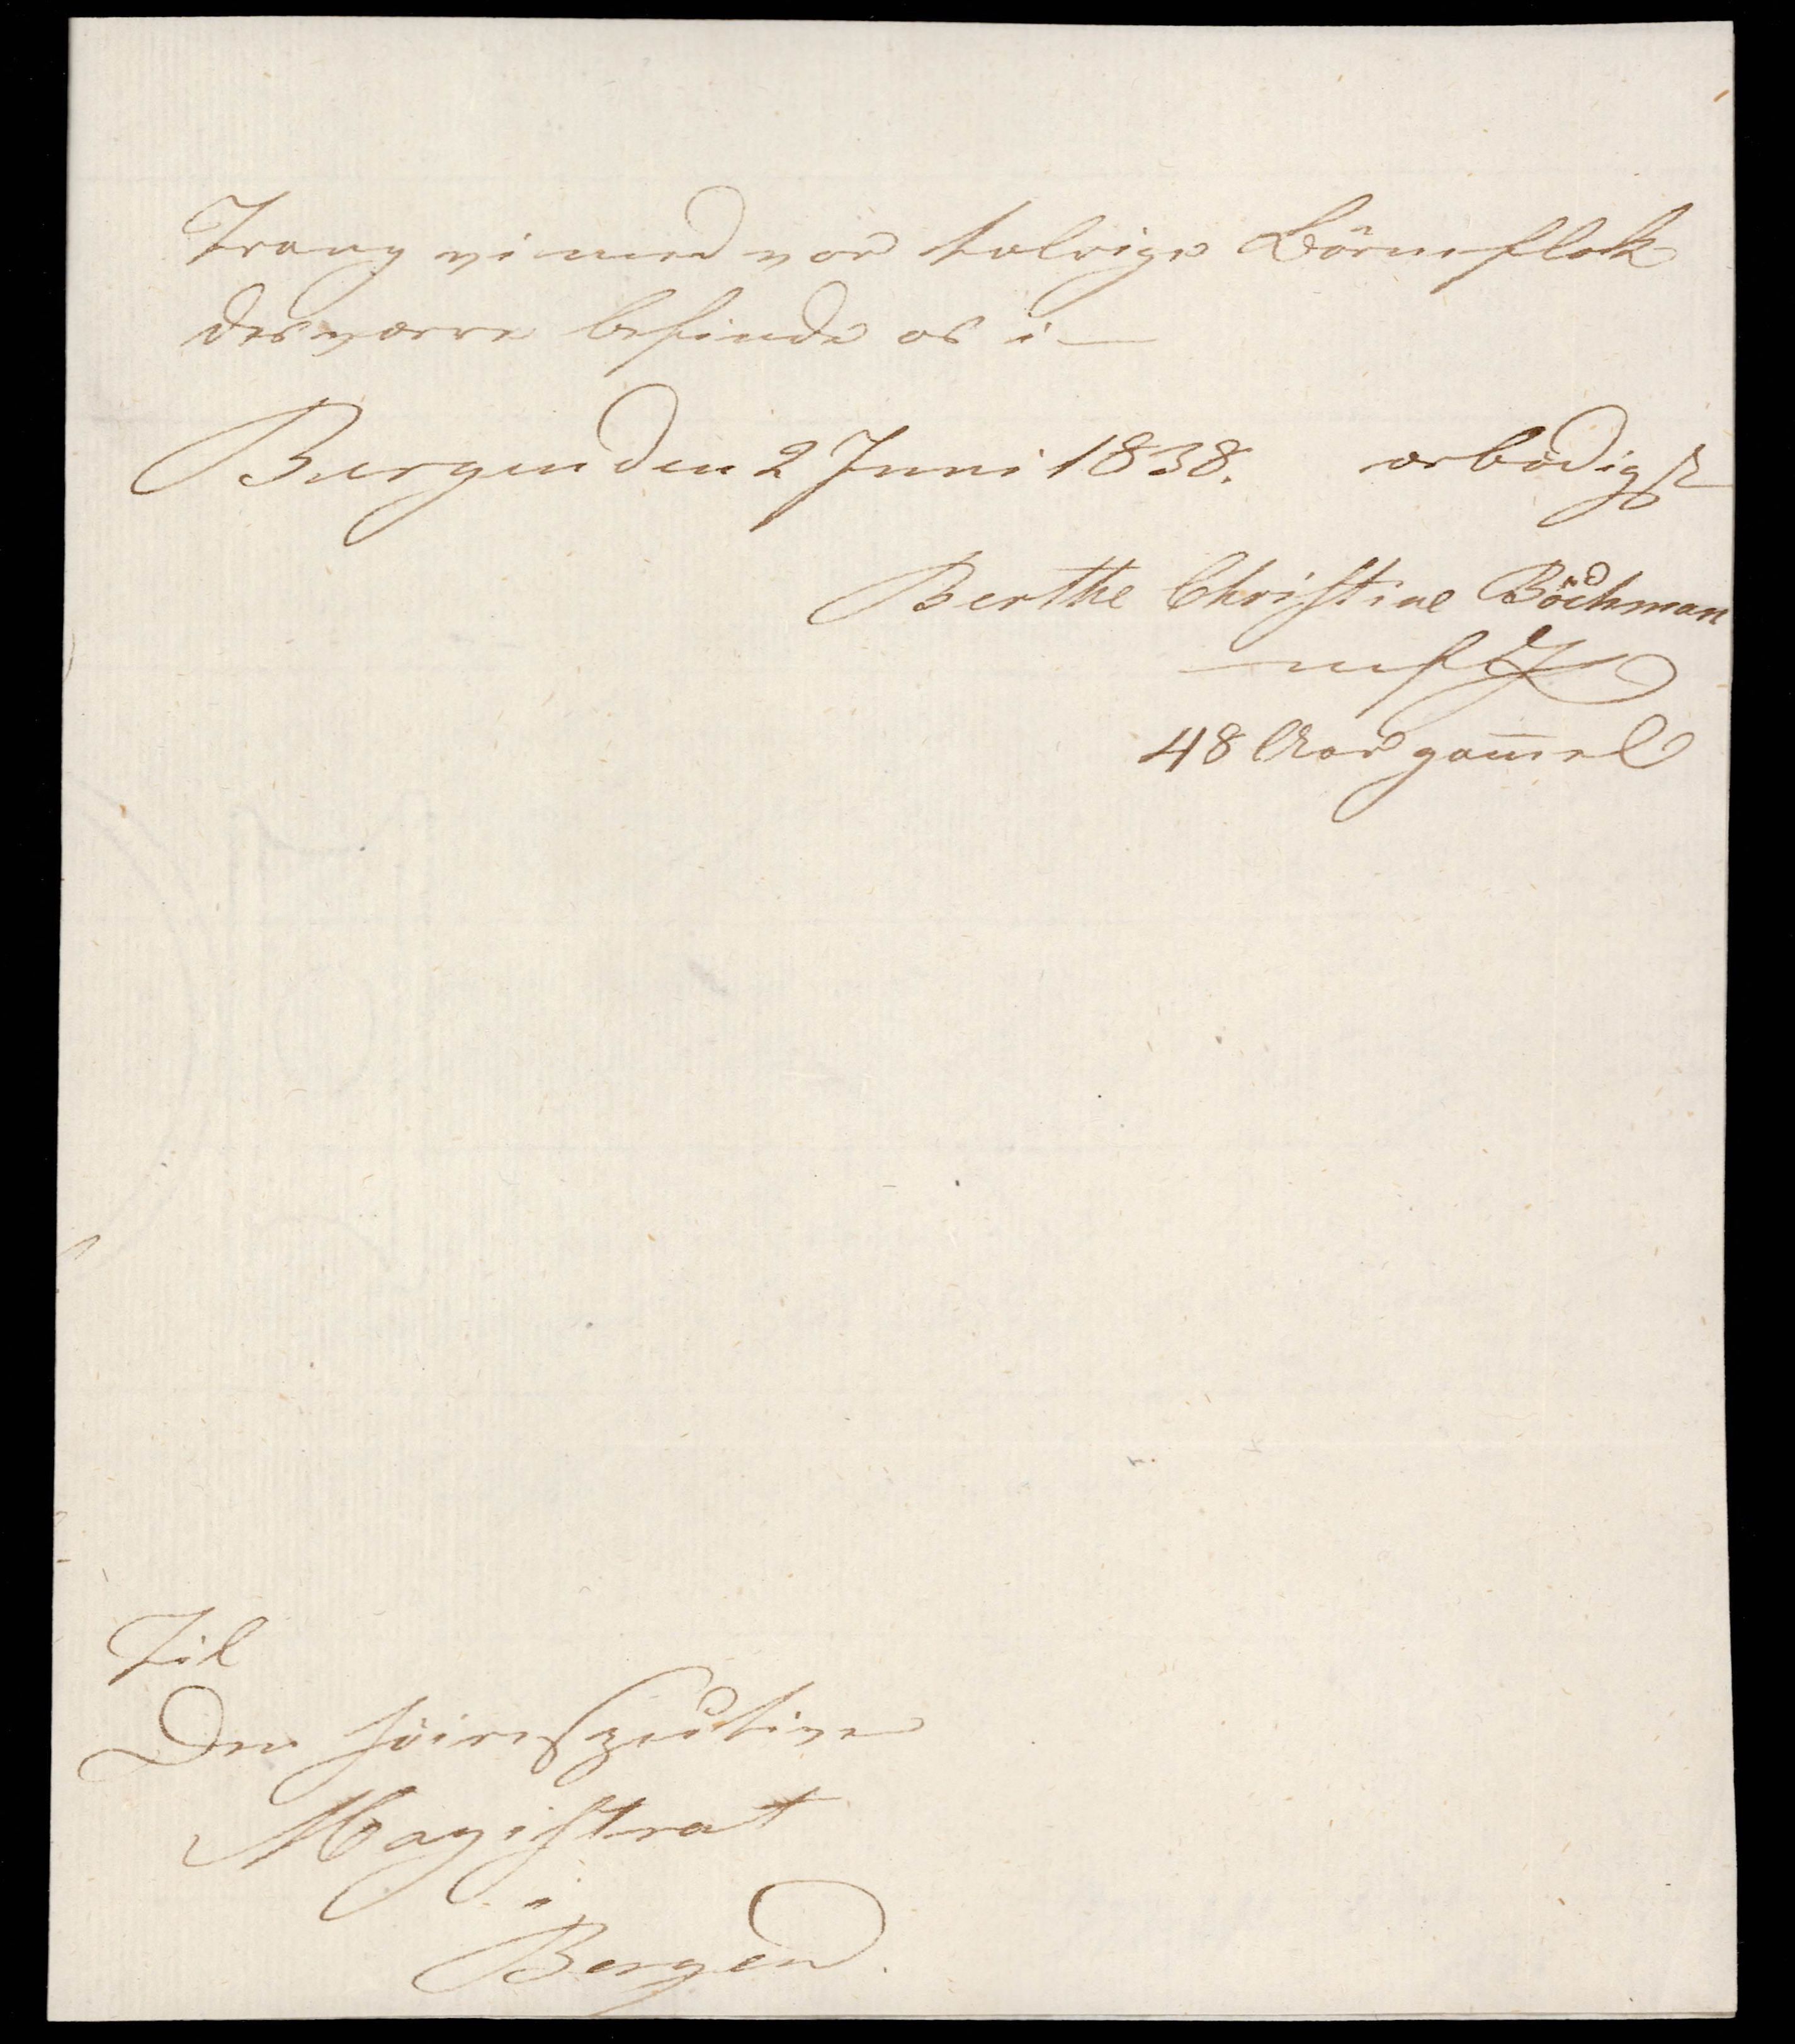 Trang vi med vor talrige Börneflok
desværre befinde os i —
Bergen den 2 Juni 1838. ærbödigst
Berthe Christine Böckman
48 Aar gam̅el
Til
Den höirespective
Magistrat
i
Bergen.